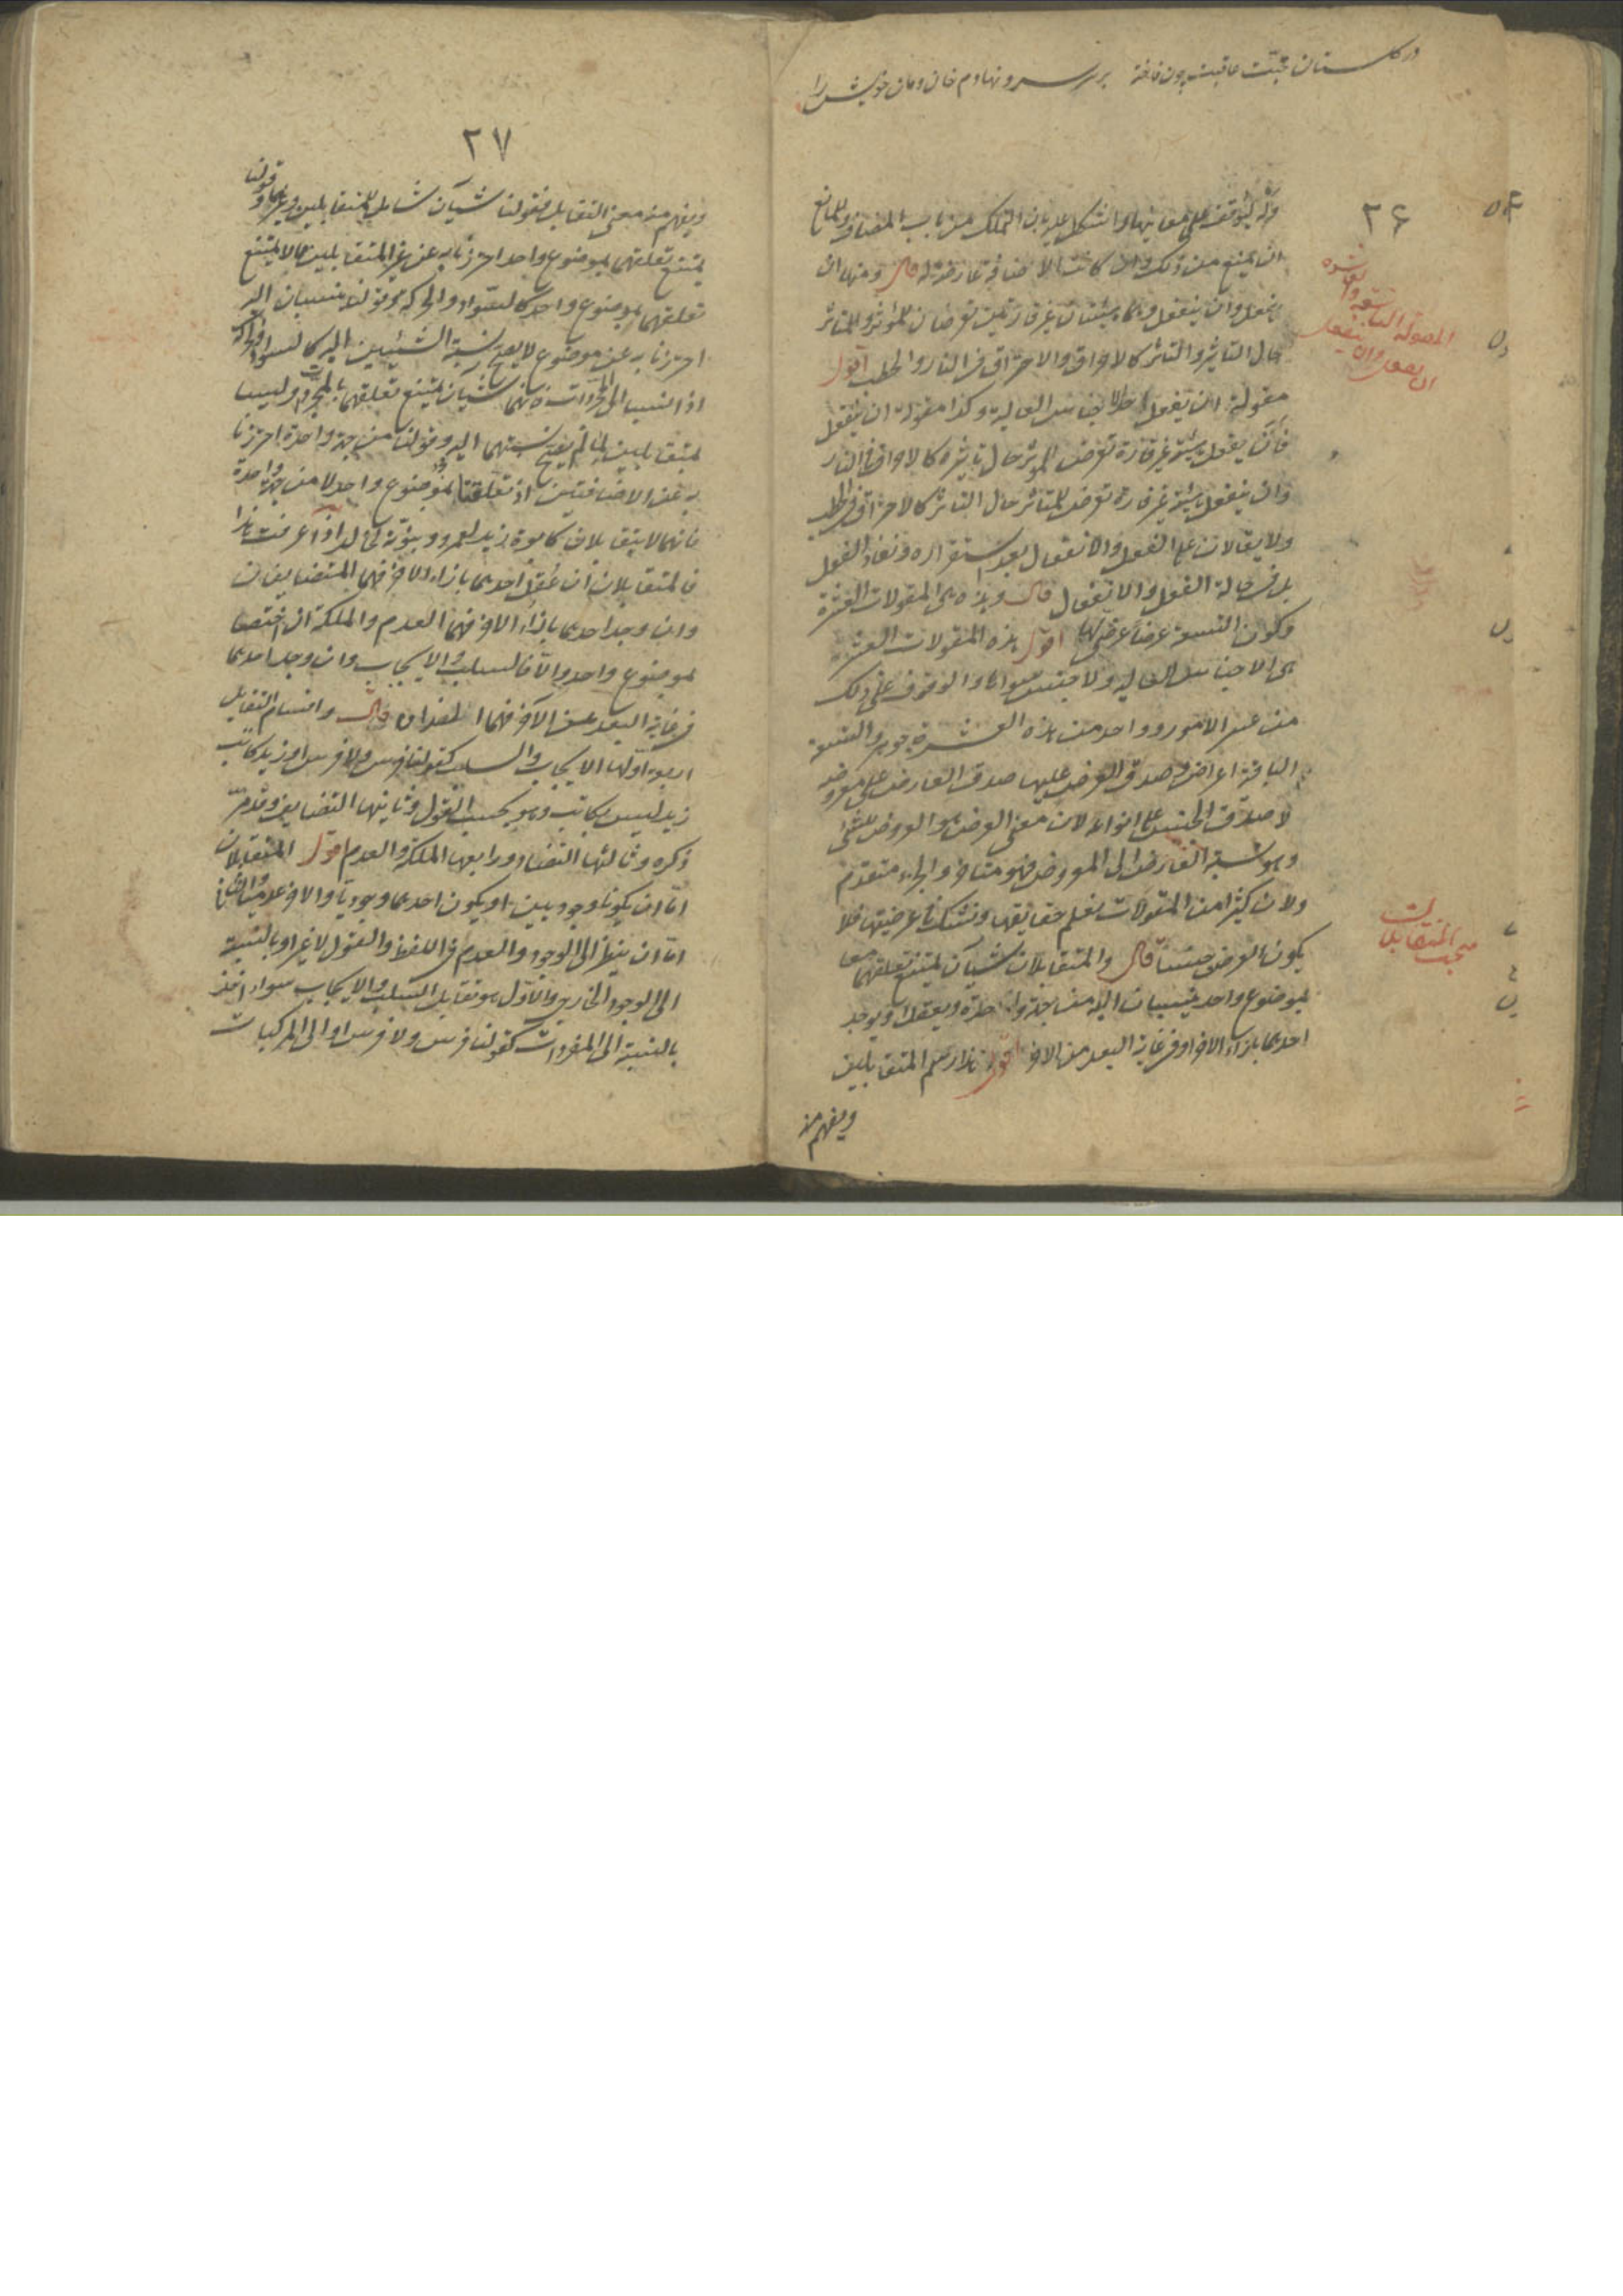 در گلستان محبت عاقبت چون فاخته بر سر سرو نهادم خان و مان خویش را
۲۶
المقولة التاسعة والعاشرة
ان يفعل وان ينفعل
توقف على معانيها واشكل عليه بان الملك من باب المضاف وللمانع
ان يمنع من ذلك وان كانت الاضافة عارضة له قال ومنها ان
يفعل وان ينفعل وهما هيئتان غير قارتين تعرضان للمؤثر والمتأثر
حال التأثير والتأثر كالاحراق والاحتراق فى النار والحطب اقول
مقولة ان يفعل احد الاجناس العالية وكذا مقولة ان ينفعل
فان يفعل هيئة غير قارة تعرض للمؤثر حال تأثيره كالاحراق فى النار
وان ينفعل هيئة غير قارة تعرض للمتأثر حال التأثر كالاحتراق فى الحطب
ولا يقالان على الفعل والانفعال بعد استقراره ونفاد الفعل
بل فى حالة الفعل والانفعال قال وهذه هى المقولات العشرة
وكون التسعة عرضا عرضى لها اقول هذه المقولات العشر
هى الاجناس العالية ولا جنس سواها والوقوف على ذلك
من عسر الامور وواحد من هذه العشرة جوهر والتسعة
الباقية اعراض وصدق العرض عليها صدق العارض على معروضه
لا صدق الجنس على انواعه لان معنى العرض هو العروض للشئ
وهو نسبة العارض الى المعروض فهو متأخر والجزء متقدم
ولان كثيرا من المقولات نعلم حقايقها ونشك فى عرضيتها فلا
يكون العرض جنسا قال والمتقابلان شيآن يمتنع تعلقهما معا
بموضوع واحد ينسبان اليه من جهة واحدة ويعقل او يوجد
احدهما بازاء الاخر او فى غاية البعد من الاخر اقول هذا رسم المتقابلين
مبحث المتقابلات
ويفهم منه
۲۷
ويفهم منه معنى التقابل فقولنا شيآن شامل للمتقابلين وغيرهما وقولنا
يمتنع تعلقهما بموضوع واحد احترزنا به عن غير المتقابلين مما لا يمتنع
تعلقهما بموضوع واحد كالسواد والحركة وقولنا ينسبان اليه
احترزنا به عن موضوع لا يصح نسبة الشيئين اليه كالسواد والحركة
اذا انتسبا الى المجردات فانهما شيآن يمتنع تعلقهما بالمجردات وليسا
بمتقابلين لما لم يصح نسبتهما اليه وقولنا من جهة واحدة احترزنا
به عن الاضافتين اذ تعلقتا بموضوع واحد لا من جهة واحدة
فانهما لا يتقابلان كابوة زيد لعمرو وبنوته لخالد اذا عرفت هذا
فالمتقابلان ان عقل احدهما بازاء الاخر فهما المتضايفان
وان وجد احدهما بازاء الاخر فهما العدم والملكة ان اختصا
بموضوع واحد والا فالسلب والايجاب وان وجد احدهما
فى غاية البعد عن الآخر فهما الضدان قال واقسام التقابل
اربعة اولها الايجاب والسلب كقولنا فرس ولا فرس او زيد كاتب
زيد ليس بكاتب وهو بحسب القول وثانيها التضايف وقد مر
ذكره وثالثها التضاد ورابعها الملكة والعدم اقول المتقابلان
اما ان يكونا وجوديين او يكون احدهما وجوديا والاخر عدميا والثانى
اما ان ينظر الى الوجود والعدم فى اللفظ والقول لا غير او بالنسبة
الى الوجود الخارجى والاول هو تقابل السلب والايجاب سواء اخذ
بالنسبة الى المفردات كقولنا فرس ولا فرس او الى المركبات